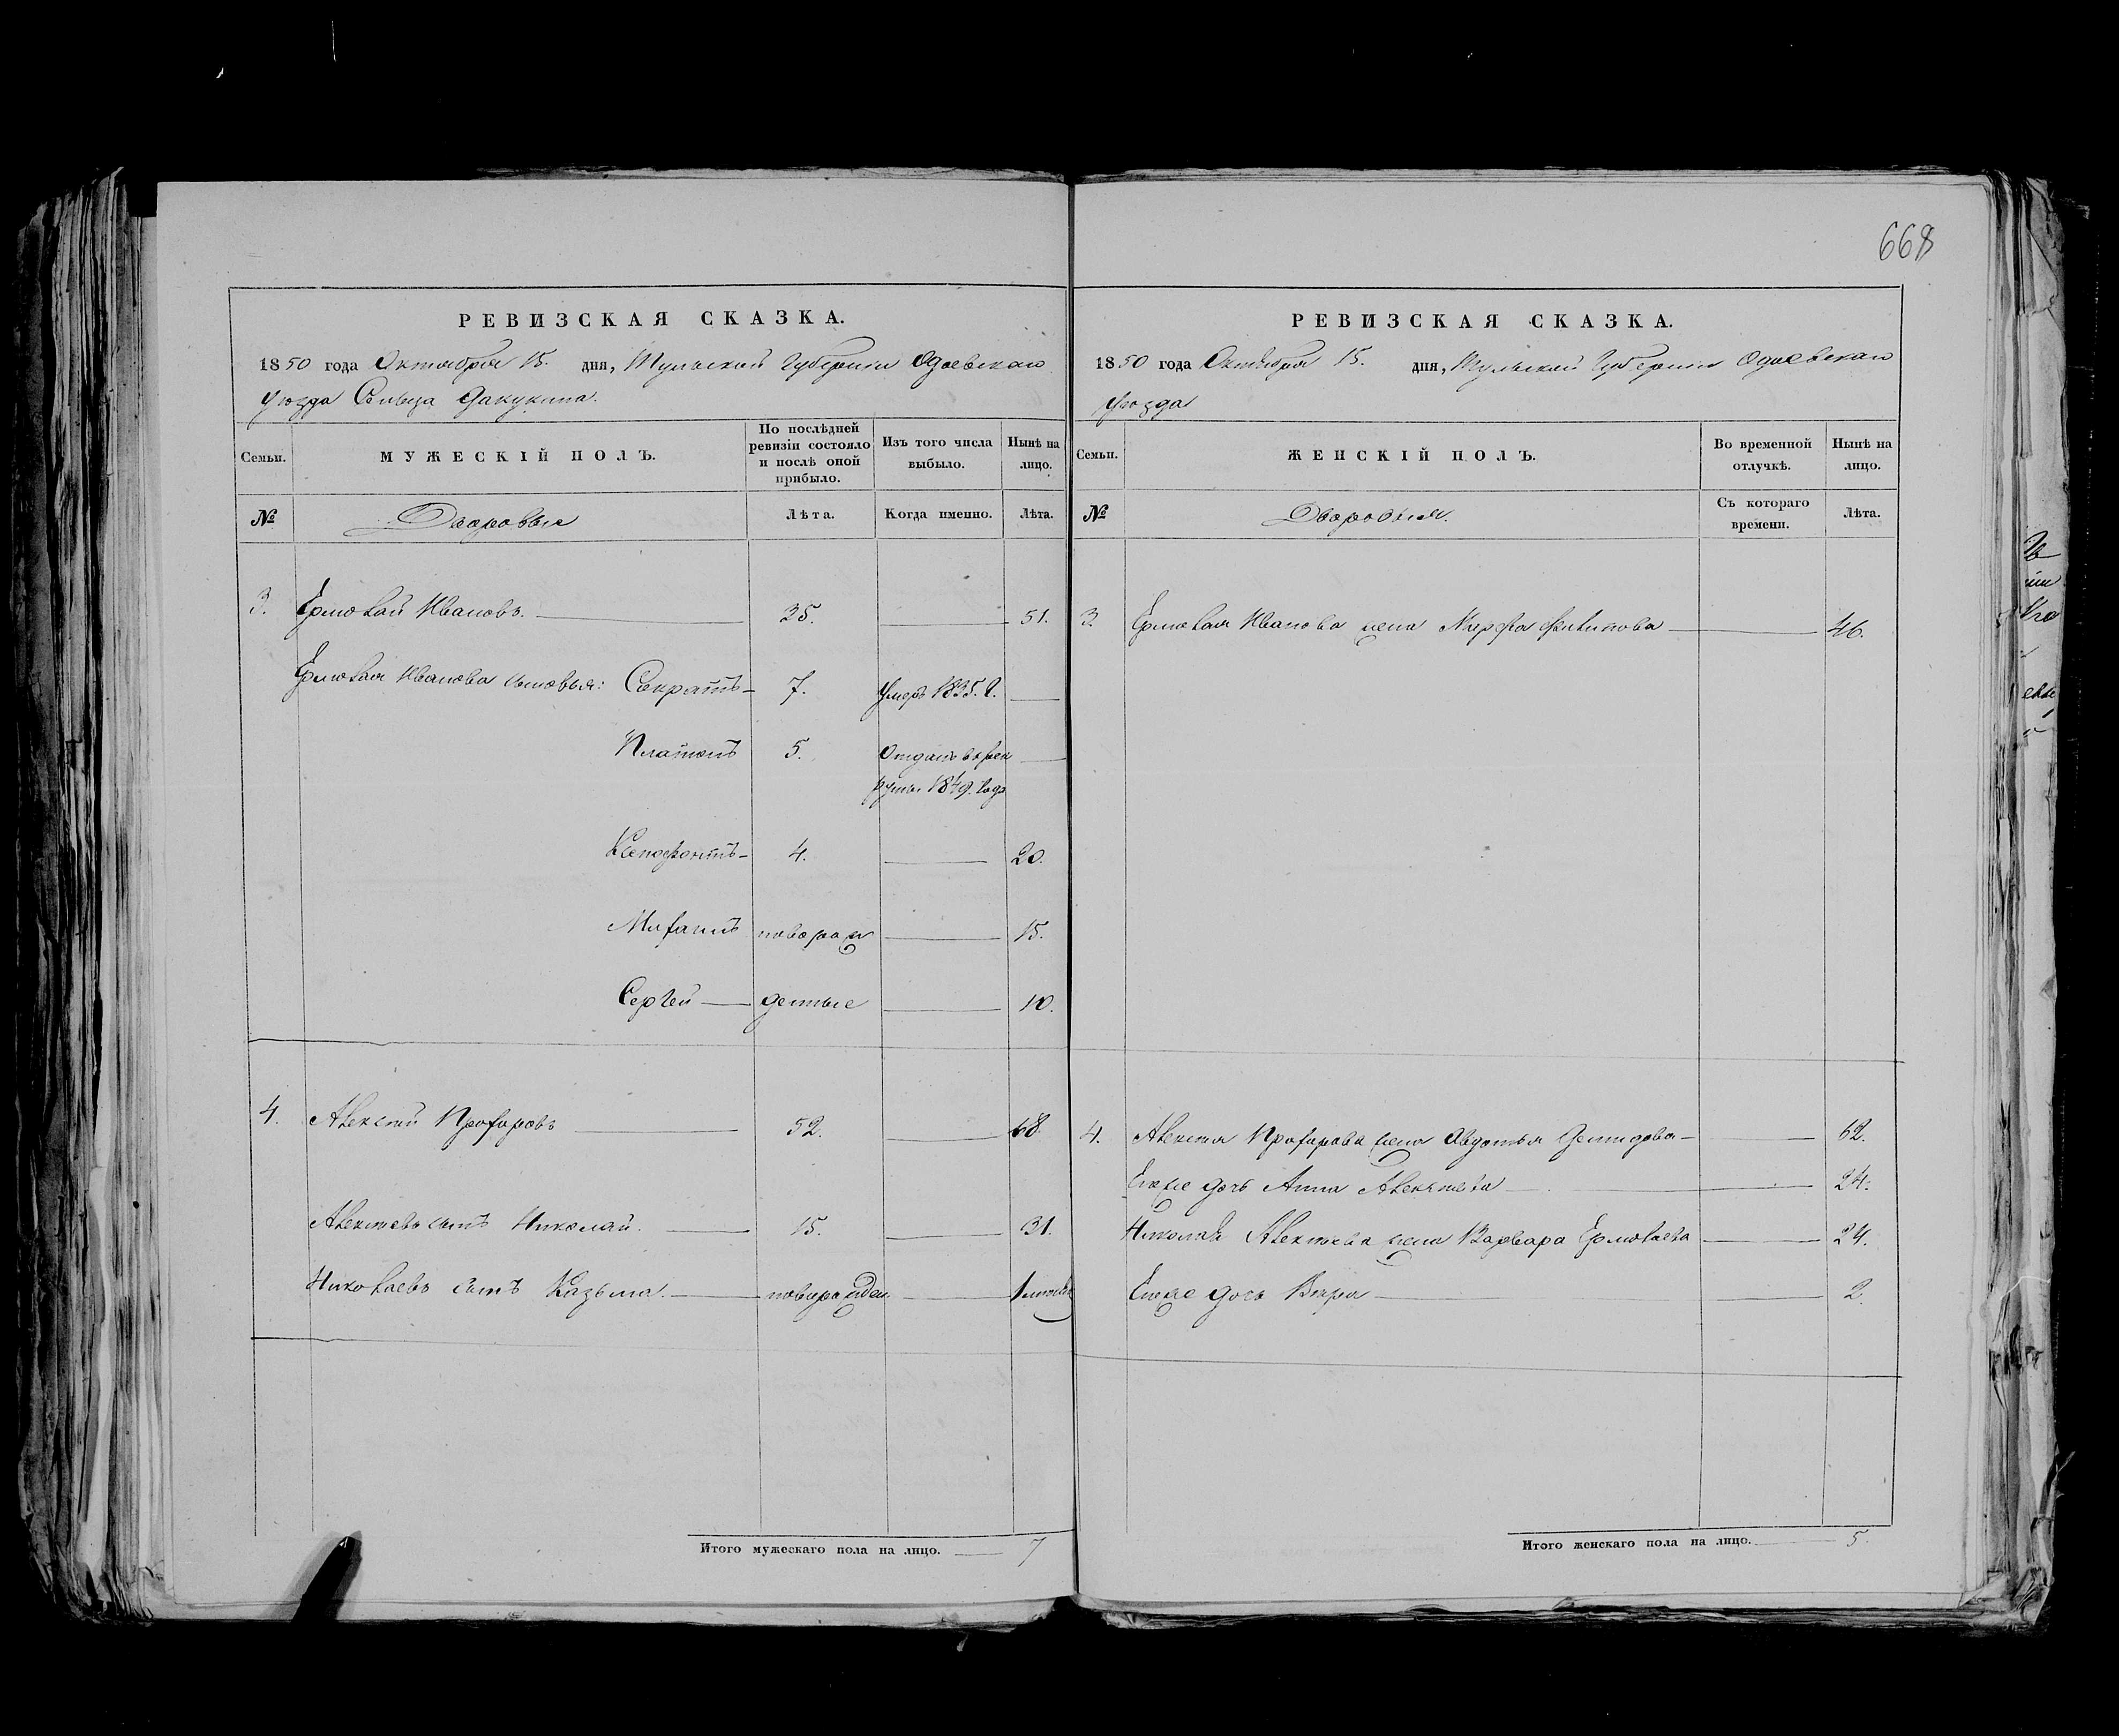 668
РЕВИЗСКАЯ СКАЗКА.
1850 года Октября 15. дня, Тульской Губерніи Одоевскаго
уѣзда Сельца
По послѣдней ревизіи состояло и послѣ оной прибыло.
Изъ того числа выбыло.
Нынѣ на лицо.
Семьи.
МУЖЕСКІЙ ПОЛЪ.
№ Дворовые Лѣта. Когда именно. Лѣта.
3. Ермолай Ивановъ. 35. 51.
Ермолая Иванова сыновья: Сократъ 7. умеръ 1835. г.
Платонъ 5. Отданъ въ рек
руты 1849. года
Ксенофонтъ 4. 20.
новорож 15.
Сергей денные 10.
4. Алексѣй Прохоровъ 52. 68.
Алексѣевъ сынъ Николай. 15. 31.
Николаевъ сынъ Казьма. новорожден
Итого мужескаго пола на лицо. 7
РЕВИЗСКАЯ СКАЗКА.
1850 года Октября 15. дня, Тульской Губерніи Одоевскаго
уѣзда
Семьи.
ЖЕНСКІЙ ПОЛЪ.
Во временной отлучкѣ.
Нынѣ на лицо.
№ Дворовыя. Съ котораго времени. Лѣта.
3. Ермолая Иванова жена Марфа Филипова 46.
4. Алексѣя Прохорова жена Авдотья Демидова 62.
Ихже дочь Анна Алексѣева 24.
Николая Алексѣева жена Варвара Ермолаева 24.
Ихже дочь Вѣра 2.
Итого женскаго пола на лицо. 5.